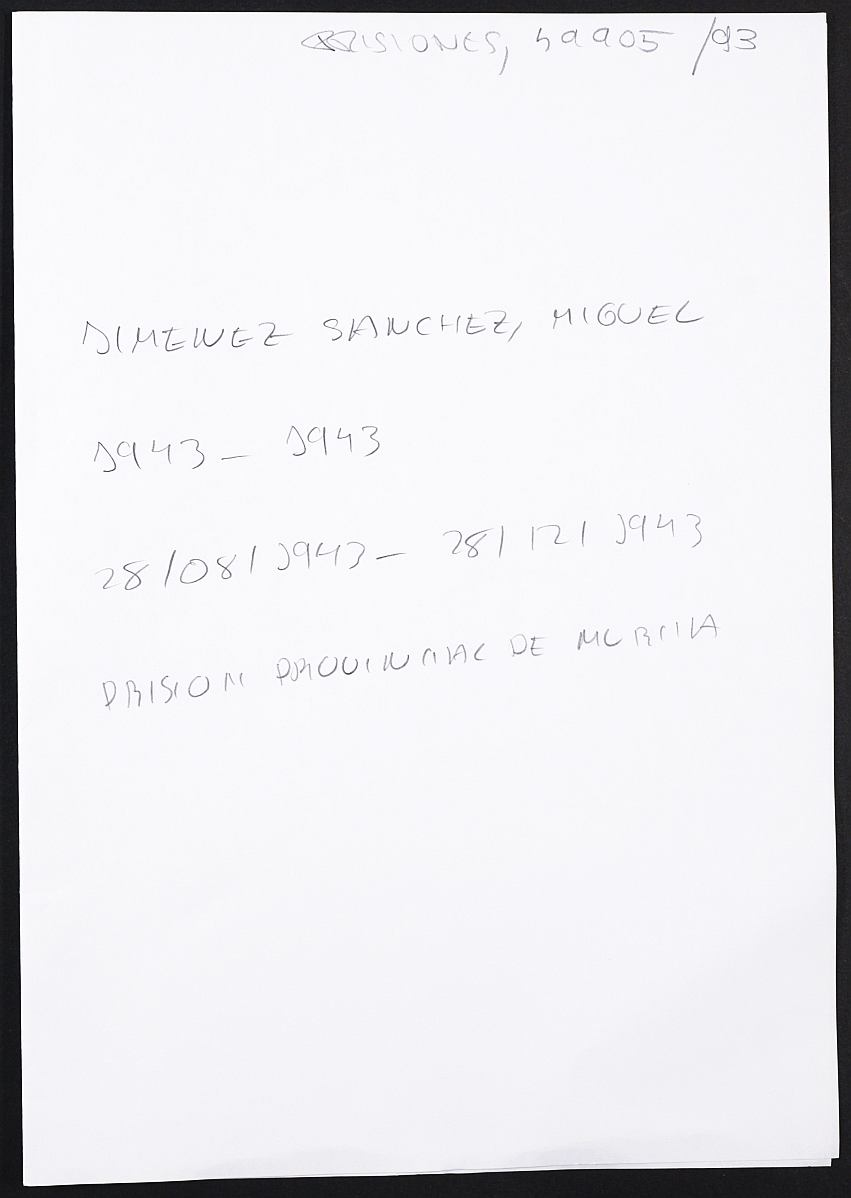 PRISIONES, 49905 /93
JIMENEZ SANCHEZ, MIGUEL
1943 - 1943
28/08/1943 - 28/12/1943
PRISION PROVINCIAL DE MURCIA